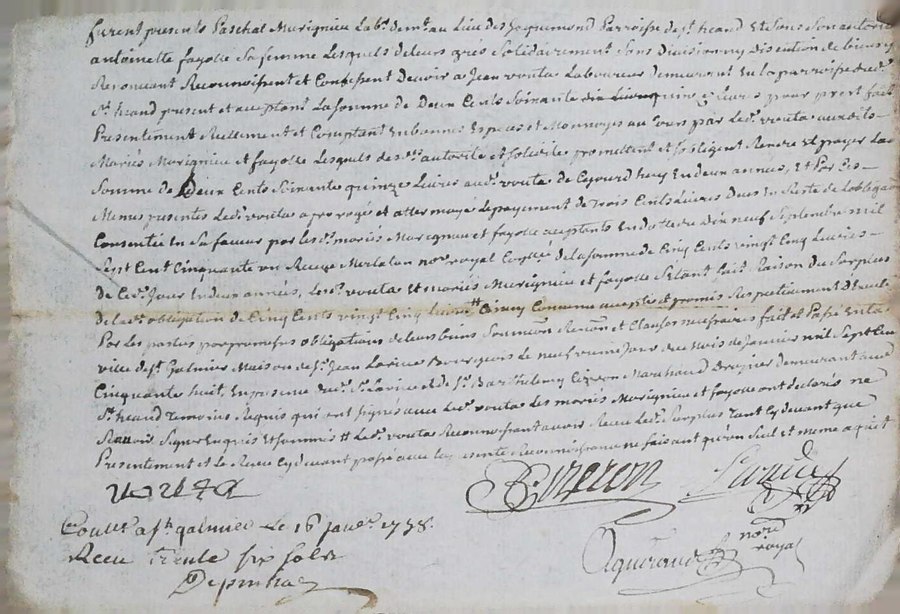 furent presents Paschal Murignieu Labr. demt. au Lieu des Parroisse de st. heand Et sous son autorite
antoinette fayolle sa femme Lesquels de leurs grés solidairement sans division ny discution de biens y
Renonçant Reconnoissent et Confessent Devoir a Jean vouta Laboureur Demeurant En la parroisse dud.
st. heand present et acceptant La somme de Deux Cents Soixante quinze Livres pour pret fait
Presentement Reellement et Comptant En bonnes Especes et Monnoyes au Cours par Led. vouta auxdits
Mariés Murignieu et fayolle Lesquels des. autorite et solidite promettent et s'obligent Rendre Et payer La
somme de Deux Cents Soixante quinze Livres aud. vouta de Cejourd'huy En deux années, Et Par Ces
Memes presentes Led. vouta a prorogé et attermoyé Le payement de trois Cents Livres Dues En Reste de Lobligaon
Consentie En sa faveur par lesd. mariés Murignieu et fayolle acceptants En datte du Dix neuf Septembre mil
Sept Cent Cinquante un Reçue Merlaton nore. royal de La somme de Cinq Cents vingt Cinq Livres
de Ced. Jour En deux années, Lesd. vouta Et mariés Murignieu et fayolle S'etant fait Raison du Surplus
de lad. obligation de Cinq Cents vingt Cinq Livres # Ainsy Convenu accepté et promis Respectivement
Par Les parties par promesses obligations de leurs biens Soumion Renon et Clauses necessaires fait et Passé En la
ville de st. Galmier Maison de sr. Jean Bourgeois Le neufvieme Jour du Mois de Janvier mil Sept Cent
Cinquante huit, En presence dud. sr. et de sr. Barthelemy Marchand Drapier demeurant aud.
st. heand temoins Requis qui ont signés avec Led. vouta les mariés Murignieu et fayolle ont declarés ne
Sçavoir Signer Enquis Et sommés # Led. vouta Reconnoissant avoir Reçu Led. Surplus Tant Cydevant que
Presentement et Le Reçu Cydevant passé avec La presente Reconnoissance ne faisant qu'un Seul et meme acquit
vouta
nore.
royal
Contlé. a st. galmier Le 16 janvr. 1758.
Reçu trente six sols